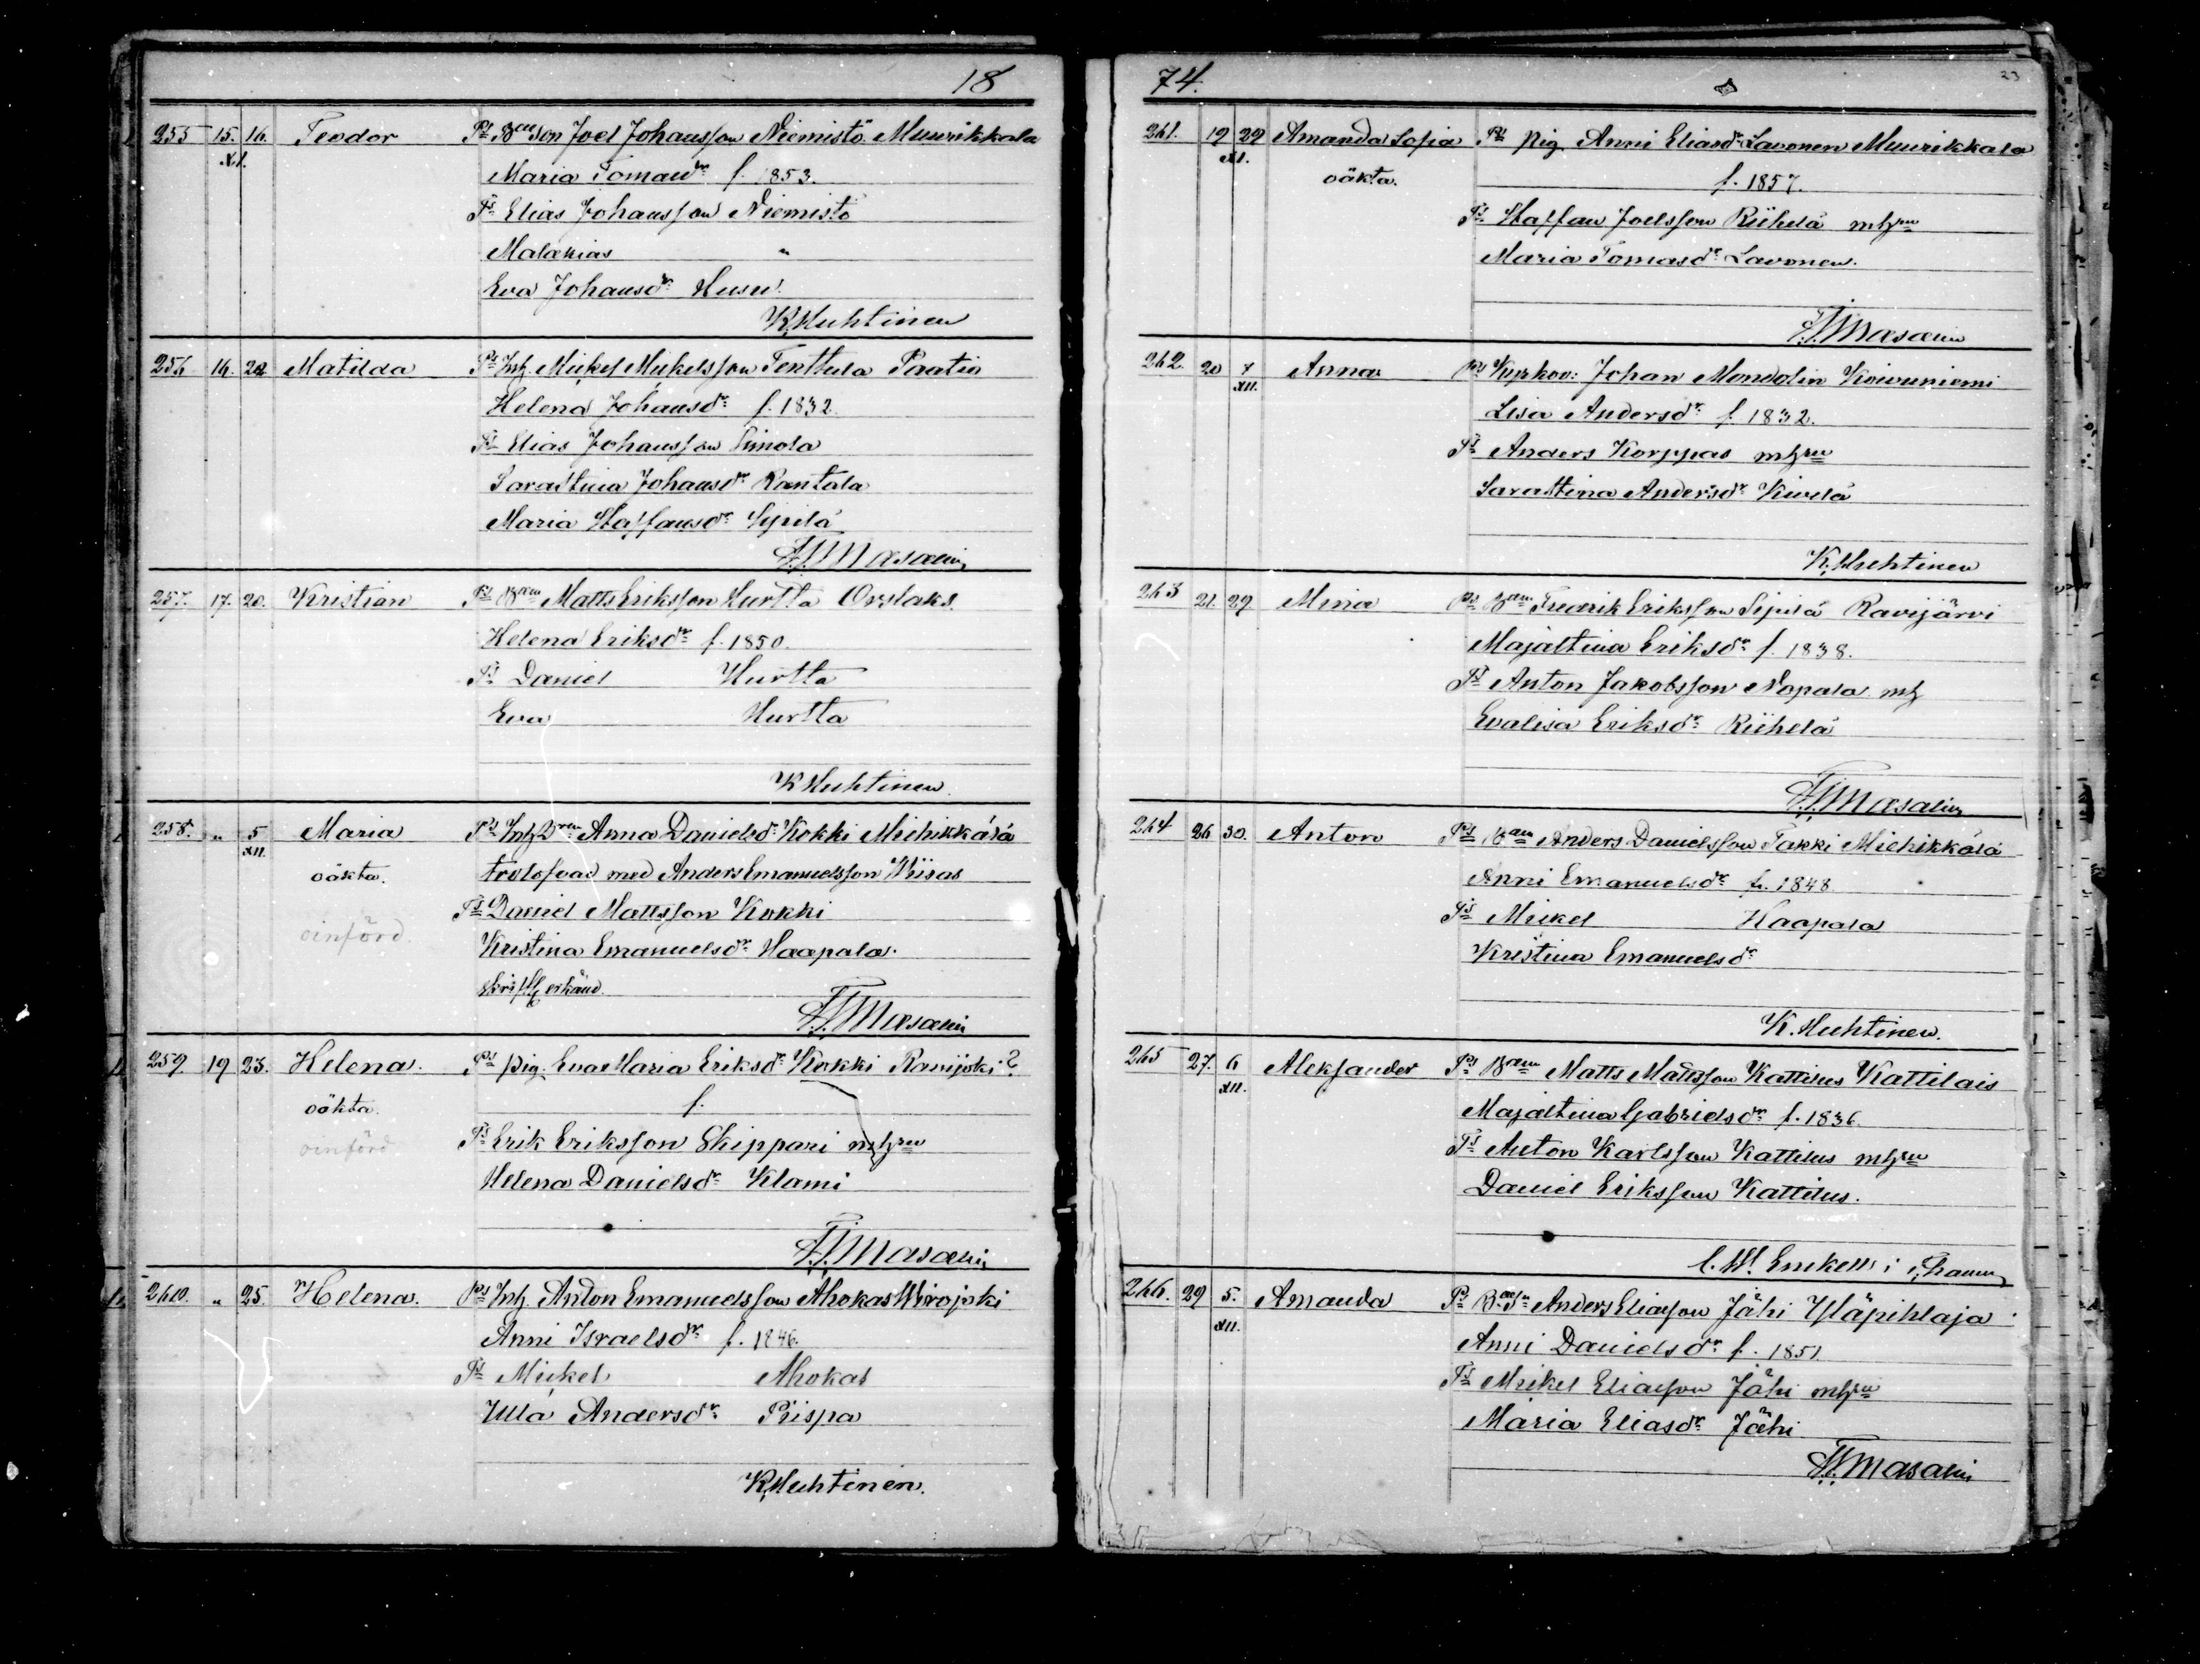 18
255 15. 16. Teodor Ps Bonson Joel Johansson Niemistö Muurikkala
XI.
Maria Tomasdr f. 1853.
Ts Elias Johansson Niemistö
Malakias "
Eva Johansdr Husu
K. Huhtinen
256 16. 22 Matilda Ps Inh. Mickel Mickelsson Tenttula Paatio
Helena Johansdr f. 1832.
Ts Elias Johansson Simola
Sarastina Johansdr Rantala
Maria Staffansdr Sipilä
F. F. Masalin
257. 17. 20. Kristian Ps Bon Matts Eriksson Hurtta
Helena Eriksdr f. 1850.
Ts Daniel Hurtta
Eva Hurtta
K Huhtinen
258. " 5 Maria Ps Inh. Anna Danielsdr Kokki Miehikkälä
XII.
oäkta. trolofvad med Anders Emanuelsson Wiisas
oinförd. Ts Daniel Mattsson Kokki
Kristina Emanuelsdr Haapala.
skriftl. erkänd.
F. F. Masalin
259 19 23. Helena. Ps pig. Eva Maria Eriksdr Kokki Ravijoki?
oäkta. f.
oinförd Ts Erik Eriksson Skippari m hru
Helena Danielsdr Klami
F. F. Masalin
260. " 25. Helena. Ps Inh. Anton Emanuelsson Ahokas Wirojoki
Anni Israelsdr f. 1846.
Ts Mickel Ahokas
Ulla Andersdr Piispa
K. Huhtinen.
74. 23
261. 19 29 Amanda Sofia Ps pig. Anni Eliasdr Lavonen Muurikkala
XI.
oäkta. f. 1857.
Ts Staffan Joelsson Riihelä m hru
Maria Tomasdr Lavonen.
F. F. Masalin
262. 20 7 Anna Ps Johan Mondolin Koivuniemi
XII.
Lisa Andersdr f. 1832.
Ts Anders Korppas m hru
Sarastina Andersdr Kivelä
K. Huhtinen
263 21. 29 Miina Ps Bon Fredrik Eriksson Sipilä Ravijärvi
Majastina Eriksdr f. 1838.
Ts Anton Jakobsson Nopala mh
Evalisa Eriksdr Riihelä
F. F. Masalin
264 26 30. Anton Ps Bon Anders Danielsson Takki Miehikkälä
Anni Emanuelsdr f. 1848
Ts Mickel Haapala
Kristina Emanuelsdr
K. Huhtinen.
265 27. 6 Aleksander Ps Bon Matts Mattsson Kattilus Kattilais
XII.
Majastina Gabrielsdr f. 1836.
Ts Anton Karlsson Kattilus m hru
Daniel Eriksson Kattilus.
266. 29 5. Amanda Ps B.son Anders Eliasson Jähi Yläpihlaja
XII.
Anni Danielsdr f. 1851
Ts Mickel Eliasson Jähi m hru
Maria Eliasdr Jähi
F. F. Masalin